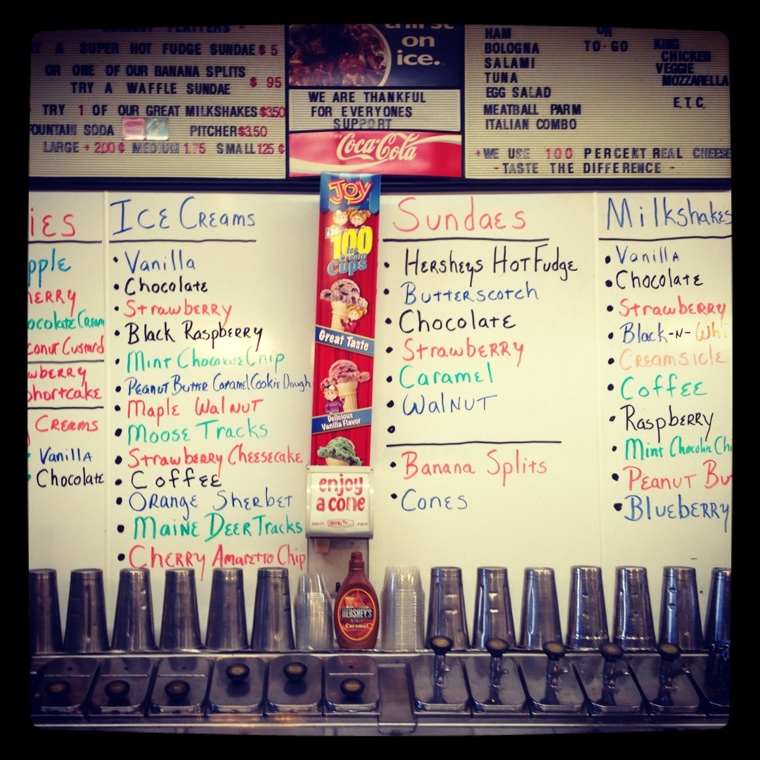 A SUPER HOT FUDGE SUNDAE $5
OR ONE OF OUR BANANA SPLITS
TRY A WAFFLE SUNDAE
$ 95
TRY 1 OF OUR GREAT MILKSHAKES $350
FOUNTAIN SODA PITCHER $3.50
LARGE 2.00¢ MEDIUM 1.75 SMALL 125¢
thirst
on
ice.
WE ARE THANKFUL
FOR EVERYONES
SUPPORT
Coca-Cola
HAM
BOLOGNA
SALAMI
TUNA
EGG SALAD
MEATBALL PARM
ITALIAN COMBO
OR
TO-GO
KING
CHICKEN
VEGGIE
MOZZARELLA
E.T.C.
WE USE 100 PERCENT REAL CHEESE
-TASTE THE DIFFERENCE -
ies
pple
herry
ocolate Cream
conut Custard
wberry
shortcake
Creams
Vanilla
Chocolate
Ice Creams
• Vanilla
• Chocolate
• Strawberry
• Black Raspberry
• Mint Chocolate Chip
• Peanut Butter Caramel Cookie Dough
• Maple Walnut
• Moose Tracks
• Strawberry Cheesecake
• Coffee
• Orange Sherbet
• Maine Deer Tracks
• Cherry Amaretto Chip
JOY
100
Cups
Great Taste
Delicious
Vanilla Flavor
enjoy
a cone
HERSHEY'S
Caramel
Sundaes
• Hersheys Hot Fudge
• Butterscotch
• Chocolate
• Strawberry
• Caramel
• Walnut
•
• Banana Splits
• Cones
Milkshakes
• Vanilla
• Chocolate
• Strawberry
• Black-N-Wh
• Creamsicle
• Coffee
• Raspberry
• Mint Chocolate Ch
• Peanut Bu
• Blueberry